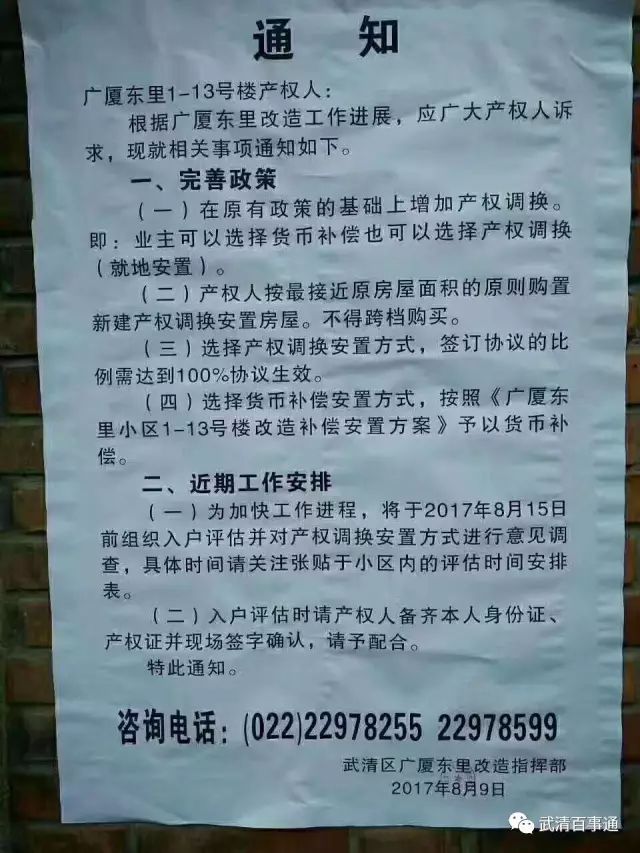 通 知
广厦东里1-13号楼产权人：
根据广厦东里改造工作进展，应广大产权人诉
求，现就相关事项通知如下。
一、完善政策
（一）在原有政策的基础上增加产权调换。
即：业主可以选择货币补偿也可以选择产权调换
（就地安置）。
（二）产权人按最接近原房屋面积的原则购置
新建产权调换安置房屋。不得跨档购买。
（三）选择产权调换安置方式，签订协议的比
例需达到100%协议生效。
（四）选择货币补偿安置方式，按照《广厦东
里小区1-13号楼改造补偿安置方案》予以货币补
偿。
二、近期工作安排
（一）为加快工作进程，将于2017年8月15日
前组织入户评估并对产权调换安置方式进行意见调
查，具体时间请关注张贴于小区内的评估时间安排
表。
（二）入户评估时请产权人备齐本人身份证、
产权证并现场签字确认，请予配合。
特此通知。
咨询电话：(022)22978255 22978599
武清区广厦东里改造指挥部
2017年8月9日
武清百事通